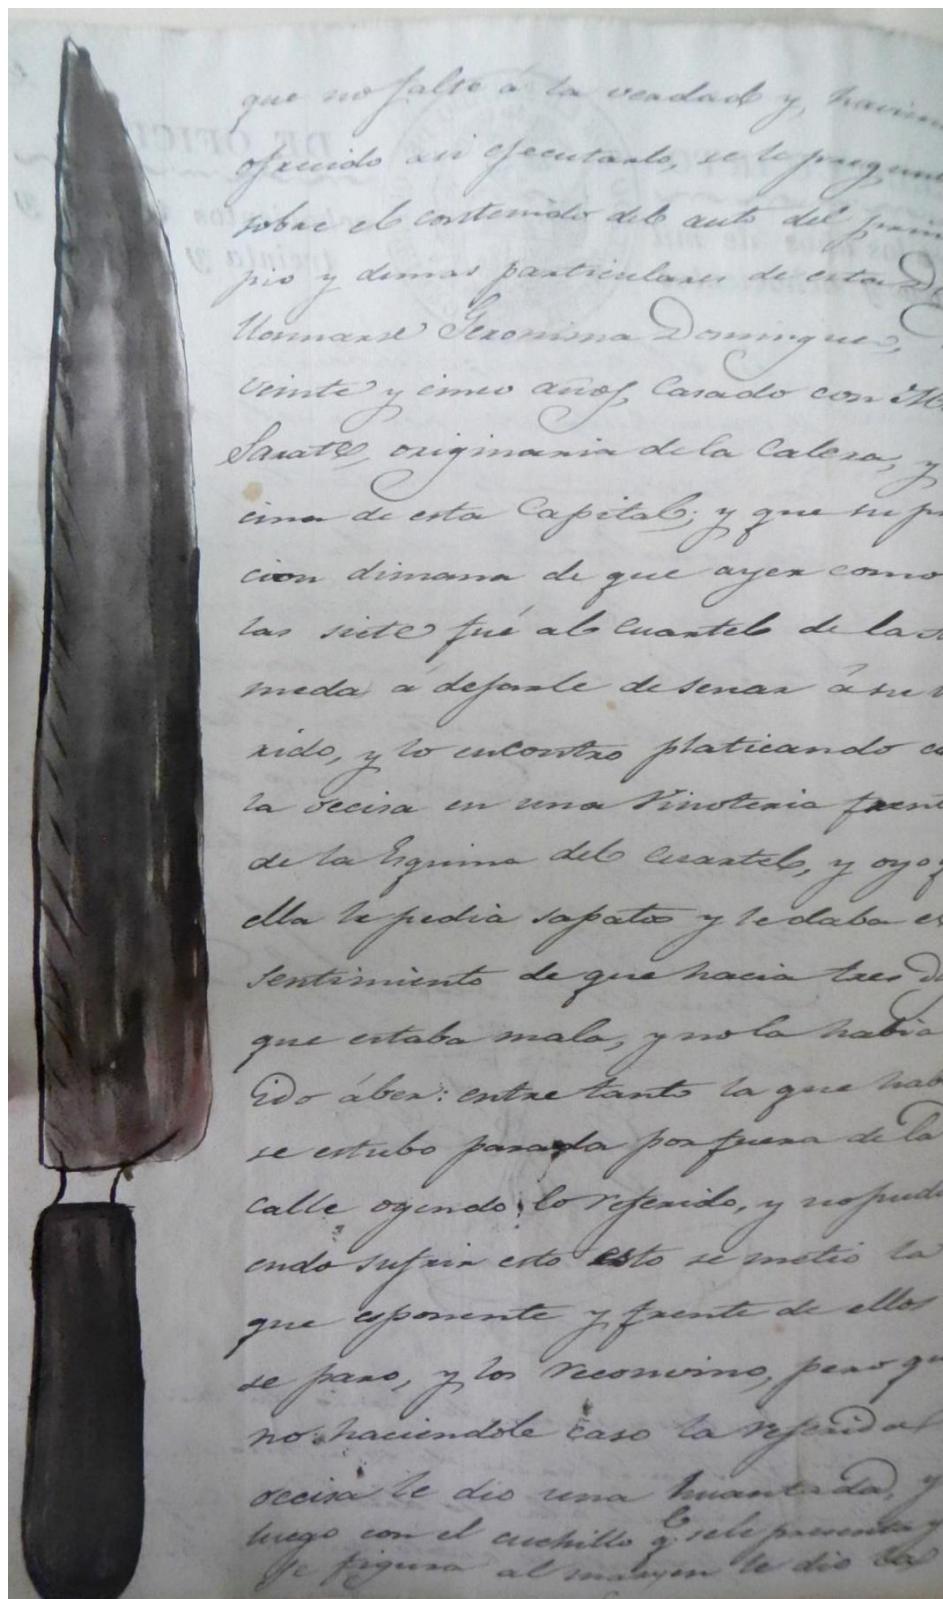 que no falte á la verdad y, havien
ofrecido asi ejecutarlo, se le pregun
sobre el contenido del auto del prin
pio y demas particulares de esta D
llonnarse Geronima Domingues,
veinte y cinco años, Casado con M
Sarate, originaria de la Calera, y
cina de esta Capital; y que su pr
cion dimana de que ayer como
las siete fué al Cuartel de la
meda á dejarle de senar á su
rido, y lo encontro platicando co
la occisa en una Vinoteria frent
de la Esquina del Cuartel, y oyo q
ella le pedia sapatos y le daba el
sentimiento de que hacia tres D
que estaba mala, y no la habia
ido áber: entre tanto la que hab
se estubo parada por fuera de la
Calle oyendo lo referido, y nopudi
endo sufrir esto esto se metio la
que esponente y frente de ellos
se paro, y los reconvino, pero qu
no haciendole caso la referida
occisa le dio una huantada, y
luego con el cuchillo q.e sele presenta y
se figura al margen le dio la